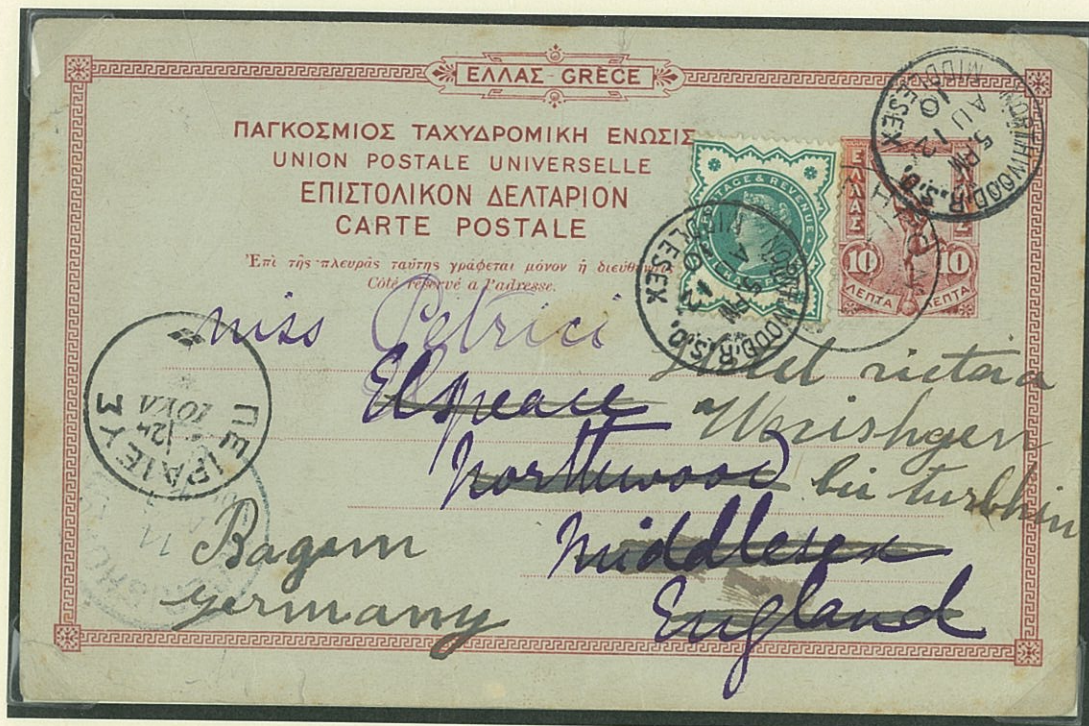 ΕΛΛΑΣ - GRÈCE
ΠΑΓΚΟΣΜΙΟΣ ΤΑΧΥΔΡΟΜΙΚΗ ΕΝΩΣΙΣ
UNION POSTALE UNIVERSELLE
ΕΠΙΣΤΟΛΙΚΟΝ ΔΕΛΤΑΡΙΟΝ
CARTE POSTALE
Ἐπὶ τῆς πλευρᾶς ταύτης γράφεται μόνον ἡ
Côté réservé a l'adresse.
POSTAGE & REVENUE
ΕΛΛΑΣ
ΕΛΛΑΣ
10 10
ΛΕΠΤΑ ΛΕΠΤΑ
NORTHWOOD.R.S.O. MIDDLESEX
5 PM
AU 12
10
NORTHWOOD.R.S.O. MIDDLESEX
5 PM
ΠΕΙΡΑΙΕΥΣ
miss Petrici
Elspeace
Northwood
Middlesex
England
Hotel victoria
bei
Germany